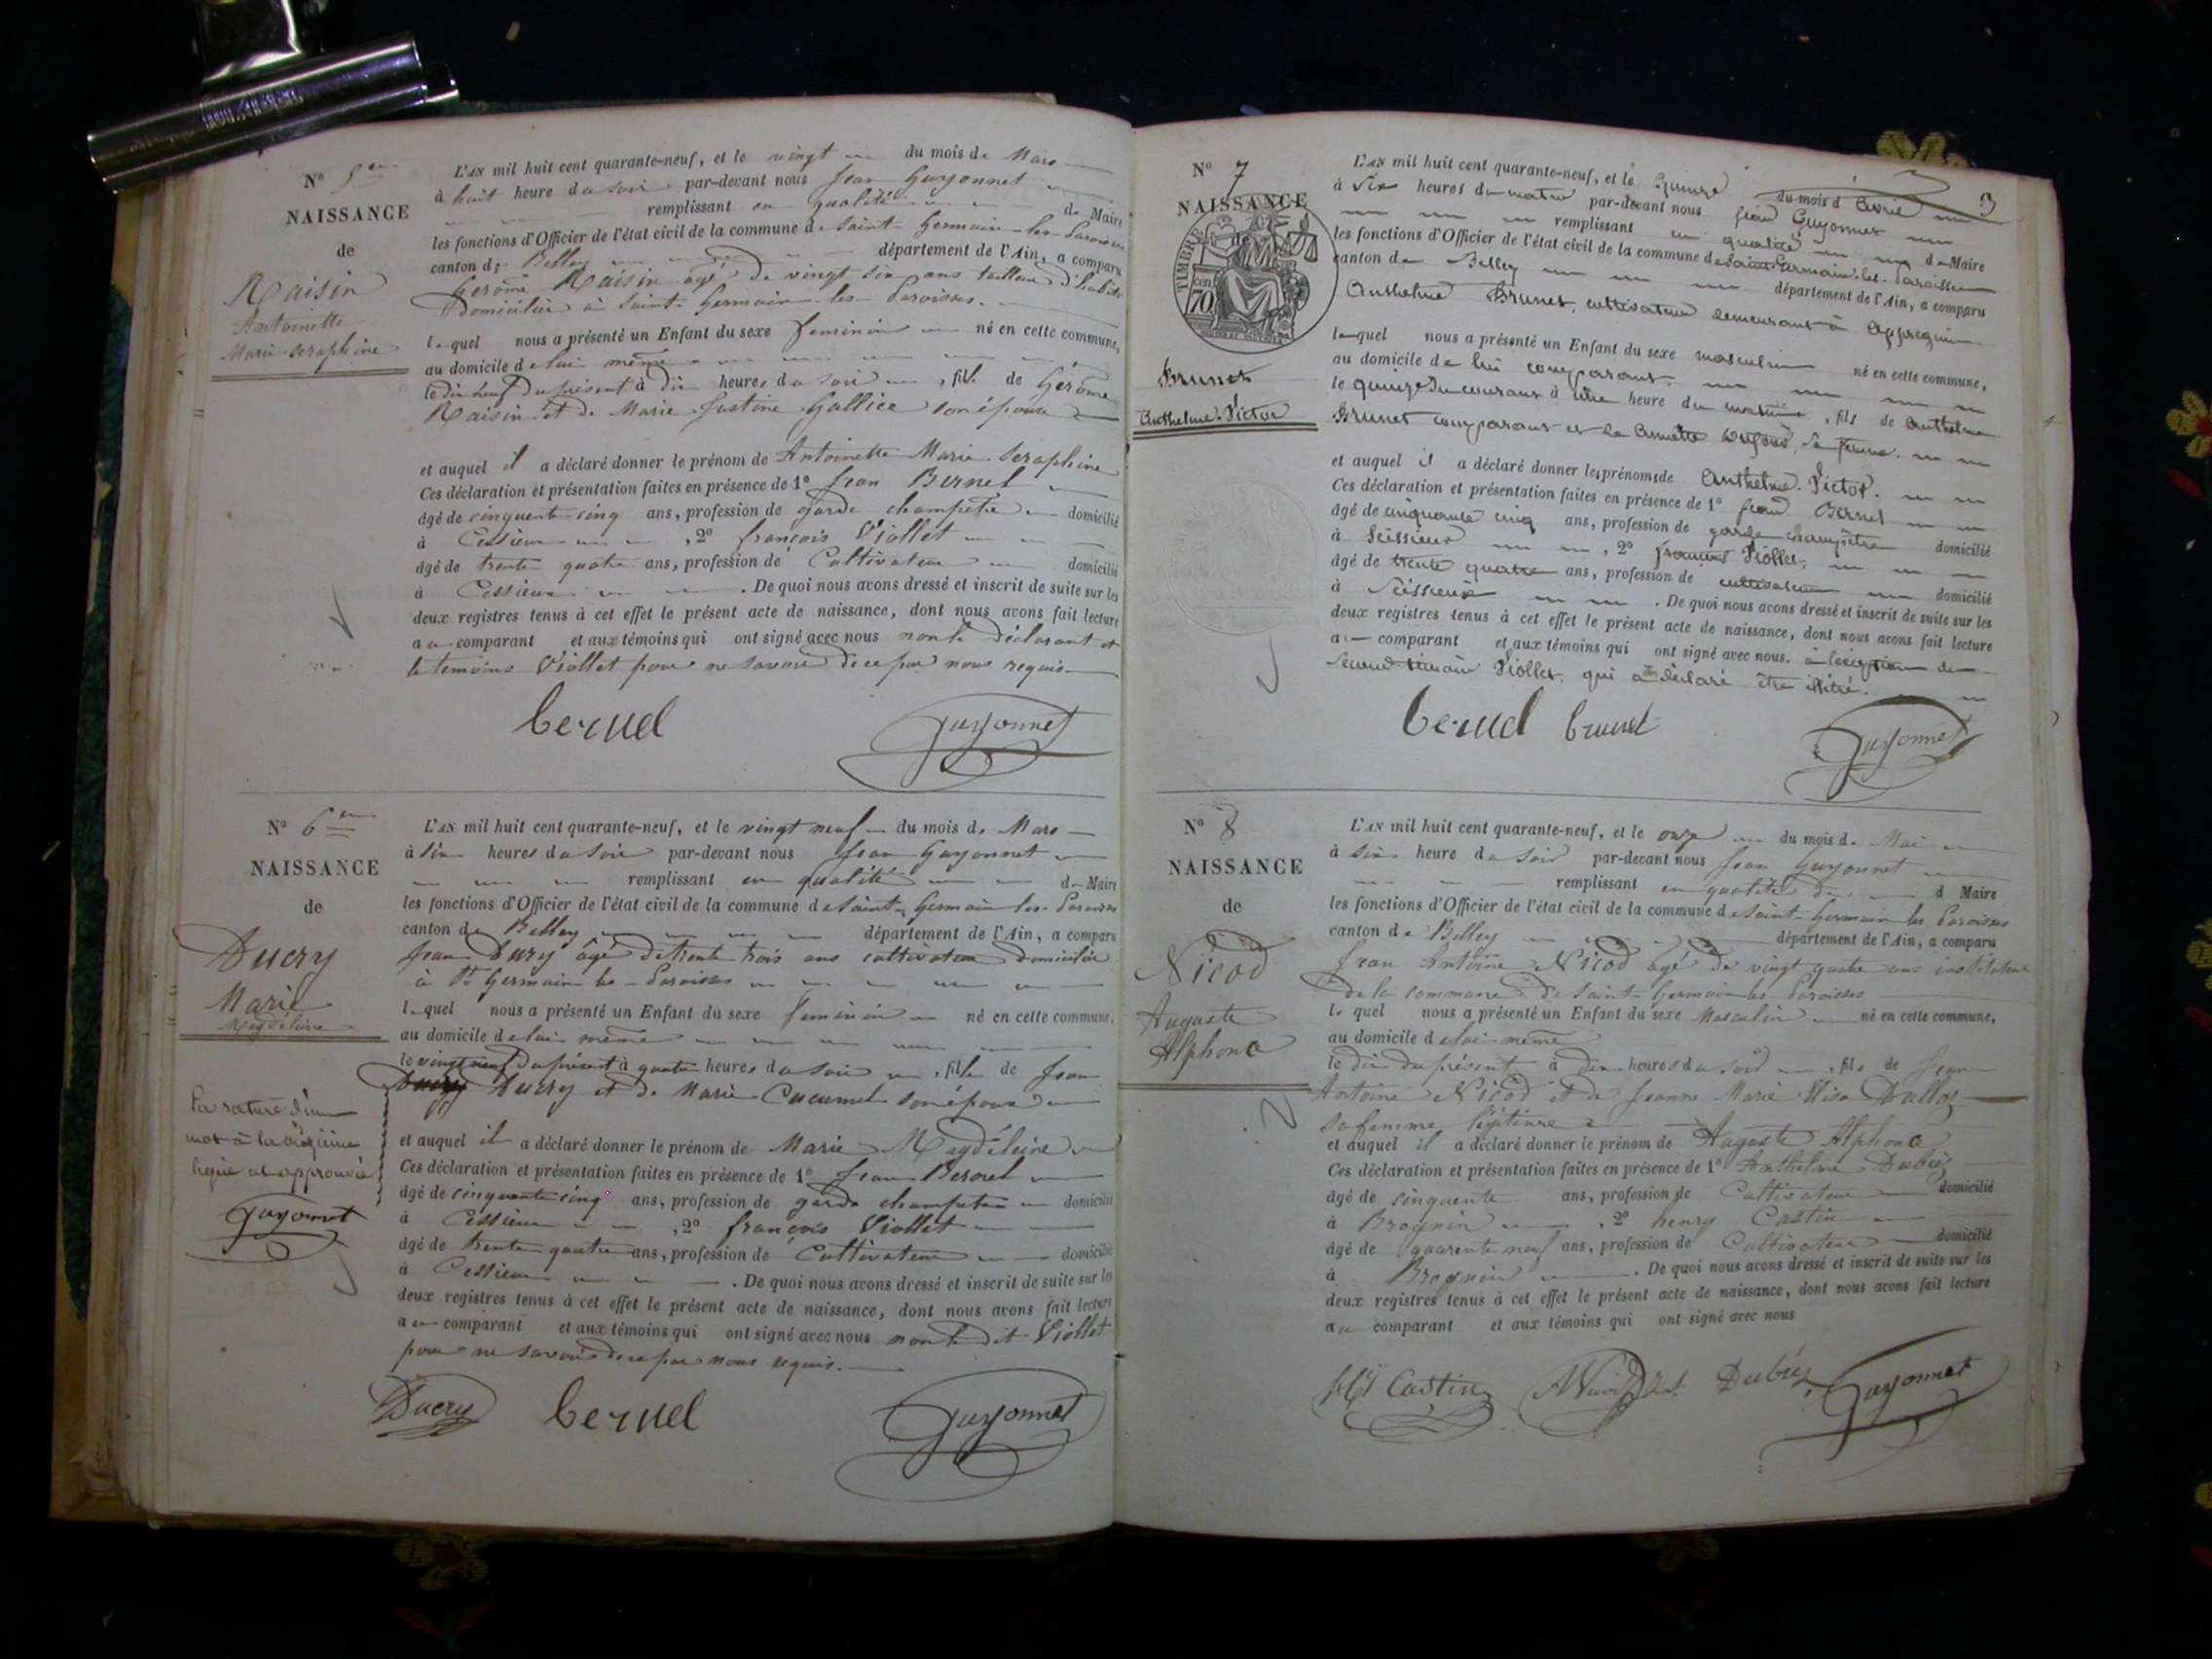 N° 5em
NAISSANCE
de
Raisin
Antoinette
Marie Seraphine
L'AN mil huit cent quarante-neuf, et le vingt du mois de Mars
à huit heure du soir par-devant nous Jean Guyonnet
remplissant en qualité de Maire
les fonctions d'Officier de l'état civil de la commune de Saint-Germain-les-Paroisses
canton de Belley département de l'Ain, a comparu
Gerôme Raisin agé de vingt six ans tailleur d'habits
Domicilié à Saint-Germain-les-Paroisses.
lequel nous a présenté un Enfant du sexe feminin né en cette commune,
au domicile de lui même
le dix neuf du présent à dix heures du soir, fille de Gérôme
Raisin et de Marie Justine Gallice son épouse
et auquel il a déclaré donner le prénom de Antoinette Marie Seraphine
Ces déclaration et présentation faites en présence de 1° Jean Bernel
âgé de cinquante cinq ans, profession de garde champetre domicilié
à Cessieux, 2° françois Viollet
âgé de trente quatre ans, profession de Cultivateur domicilié
à Cessieux. De quoi nous avons dressé et inscrit de suite sur les
deux registres tenus à cet effet le présent acte de naissance, dont nous avons fait lecture
au comparant et aux témoins qui ont signé avec nous non le déclarant et
le temoins Viollet pour ne savoir de ce par nous requis
bernel Guyonnet
N° 6em
NAISSANCE
de
Ducry
Marie
Magdéleine
La rature d'un
mot à la
ligne est approuvée
Guyonnet
L'AN mil huit cent quarante-neuf, et le vingt neuf du mois de Mars
à six heures du soir par-devant nous Jean Guyonnet
remplissant en qualité de Maire
les fonctions d'Officier de l'état civil de la commune de Saint-Germain-les-Paroisses
canton de Belley département de l'Ain, a comparu
Jean Ducry âgé de trente trois ans cultivateur domicilié
à St Germain les-Paroisses
lequel nous a présenté un Enfant du sexe feminin né en cette commune,
au domicile de lui même
le vingt neuf du présent à quatre heures du soir, fille de Jean
Ducry et de Marie Cucumel son épouse
et auquel il a déclaré donner le prénom de Marie Magdéleine
Ces déclaration et présentation faites en présence de 1° Jean Bernel
âgé de cinquante cinq ans, profession de garde champetre domicilié
à Cessieux, 2° françois Viollet
âgé de trente quatre ans, profession de Cultivateur domicilié
à Cessieux. De quoi nous avons dressé et inscrit de suite sur les
deux registres tenus à cet effet le présent acte de naissance, dont nous avons fait lecture
au comparant et aux témoins qui ont signé avec nous non le dit Viollet
pour ne savoir de ce par nous requis.
Ducry bernel Guyonnet
3
N° 7
NAISSANCE
TIMBRE
70
Brunet
Anthelme-Victor
L'AN mil huit cent quarante-neuf, et le quinze du mois d avril
à six heures du matin par-devant nous Jean Guyonnet
remplissant en qualité de Maire
les fonctions d'Officier de l'état civil de la commune de Saint-Germain-les-Paroisses
canton de Belley département de l'Ain, a comparu
Anthelme Brunet, cultivateur demeurant à Appregnin
lequel nous a présenté un Enfant du sexe masculin né en cette commune,
au domicile de lui comparant
le quinze du courant à une heure du matin, fils de Anthelme
Brunet comparant et de sa femme.
et auquel il a déclaré donner les prénoms de Anthelme-Victor.
Ces déclaration et présentation faites en présence de 1° Jean Bernel
âgé de cinquante cinq ans, profession de garde champêtre domicilié
à Seissieux, 2° françois Viollet,
âgé de trente quatre ans, profession de cultivateur domicilié
à Seissieux. De quoi nous avons dressé et inscrit de suite sur les
deux registres tenus à cet effet le présent acte de naissance, dont nous avons fait lecture
au comparant et aux témoins qui ont signé avec nous, à l'exception de
second témoin Viollet, qui a déclaré être illitré.
bernel brunet Guyonnet
N° 8
NAISSANCE
de
Nicod
Auguste
Alphonce
L'AN mil huit cent quarante-neuf, et le onze du mois de Mai
à six heure du soir par-devant nous Jean Guyonnet
remplissant en qualité de d Maire
les fonctions d'Officier de l'état civil de la commune de Saint-Germain les Paroisses
canton de Belley département de l'Ain, a comparu
Jean Antoine Nicod âgé de vingt quatre ans instituteur
de la commune de Saint-Germain les Paroisses
le quel nous a présenté un Enfant du sexe Masculin né en cette commune,
au domicile de lui-même
le dix du présent à dix heures du soir, fils de Jean
Antoine Nicod et de Jeanne Marie Elisa Dalloz
sa femme légitime
et auquel il a déclaré donner le prénom de Auguste Alphonce
Ces déclaration et présentation faites en présence de 1° Anthelme Dubiez
âgé de cinquente ans, profession de Cultivateur domicilié
à Brognin, 2° henry Castin
âgé de quarente neuf ans, profession de Cultivateur domicilié
à Brognin. De quoi nous avons dressé et inscrit de suite sur les
deux registres tenus à cet effet le présent acte de naissance, dont nous avons fait lecture
au comparant et aux témoins qui ont signé avec nous
Castin Dubiez Guyonnet